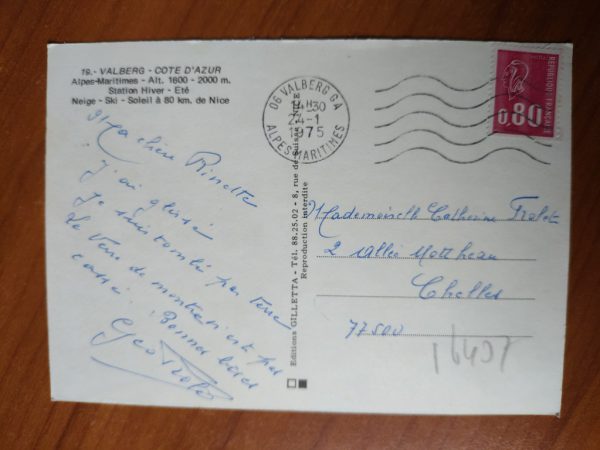 19.- VALBERG - COTE D'AZUR
Alpes-Maritimes - Alt. 1600 - 2000 m.
Station Hiver - Eté
Neige - Ski - Soleil à 80 km. de Nice
Ma chère Rinette
j'ai glissé
je suis tombé par terre
Le verre de montre n'est pas
cassé. Bonnes bises
Geo
Editions GILLETTA - Tél. 88.25.02 - 8, rue de Suisse - NICE
Reproduction interdite
06 VALBERG GA
14H30
24-1
1975
ALPES-MARITIMES
REPUBLIQUE FRANÇAISE
0,80
Mademoiselle Catherine
2 allée
Chelles
77500
16407